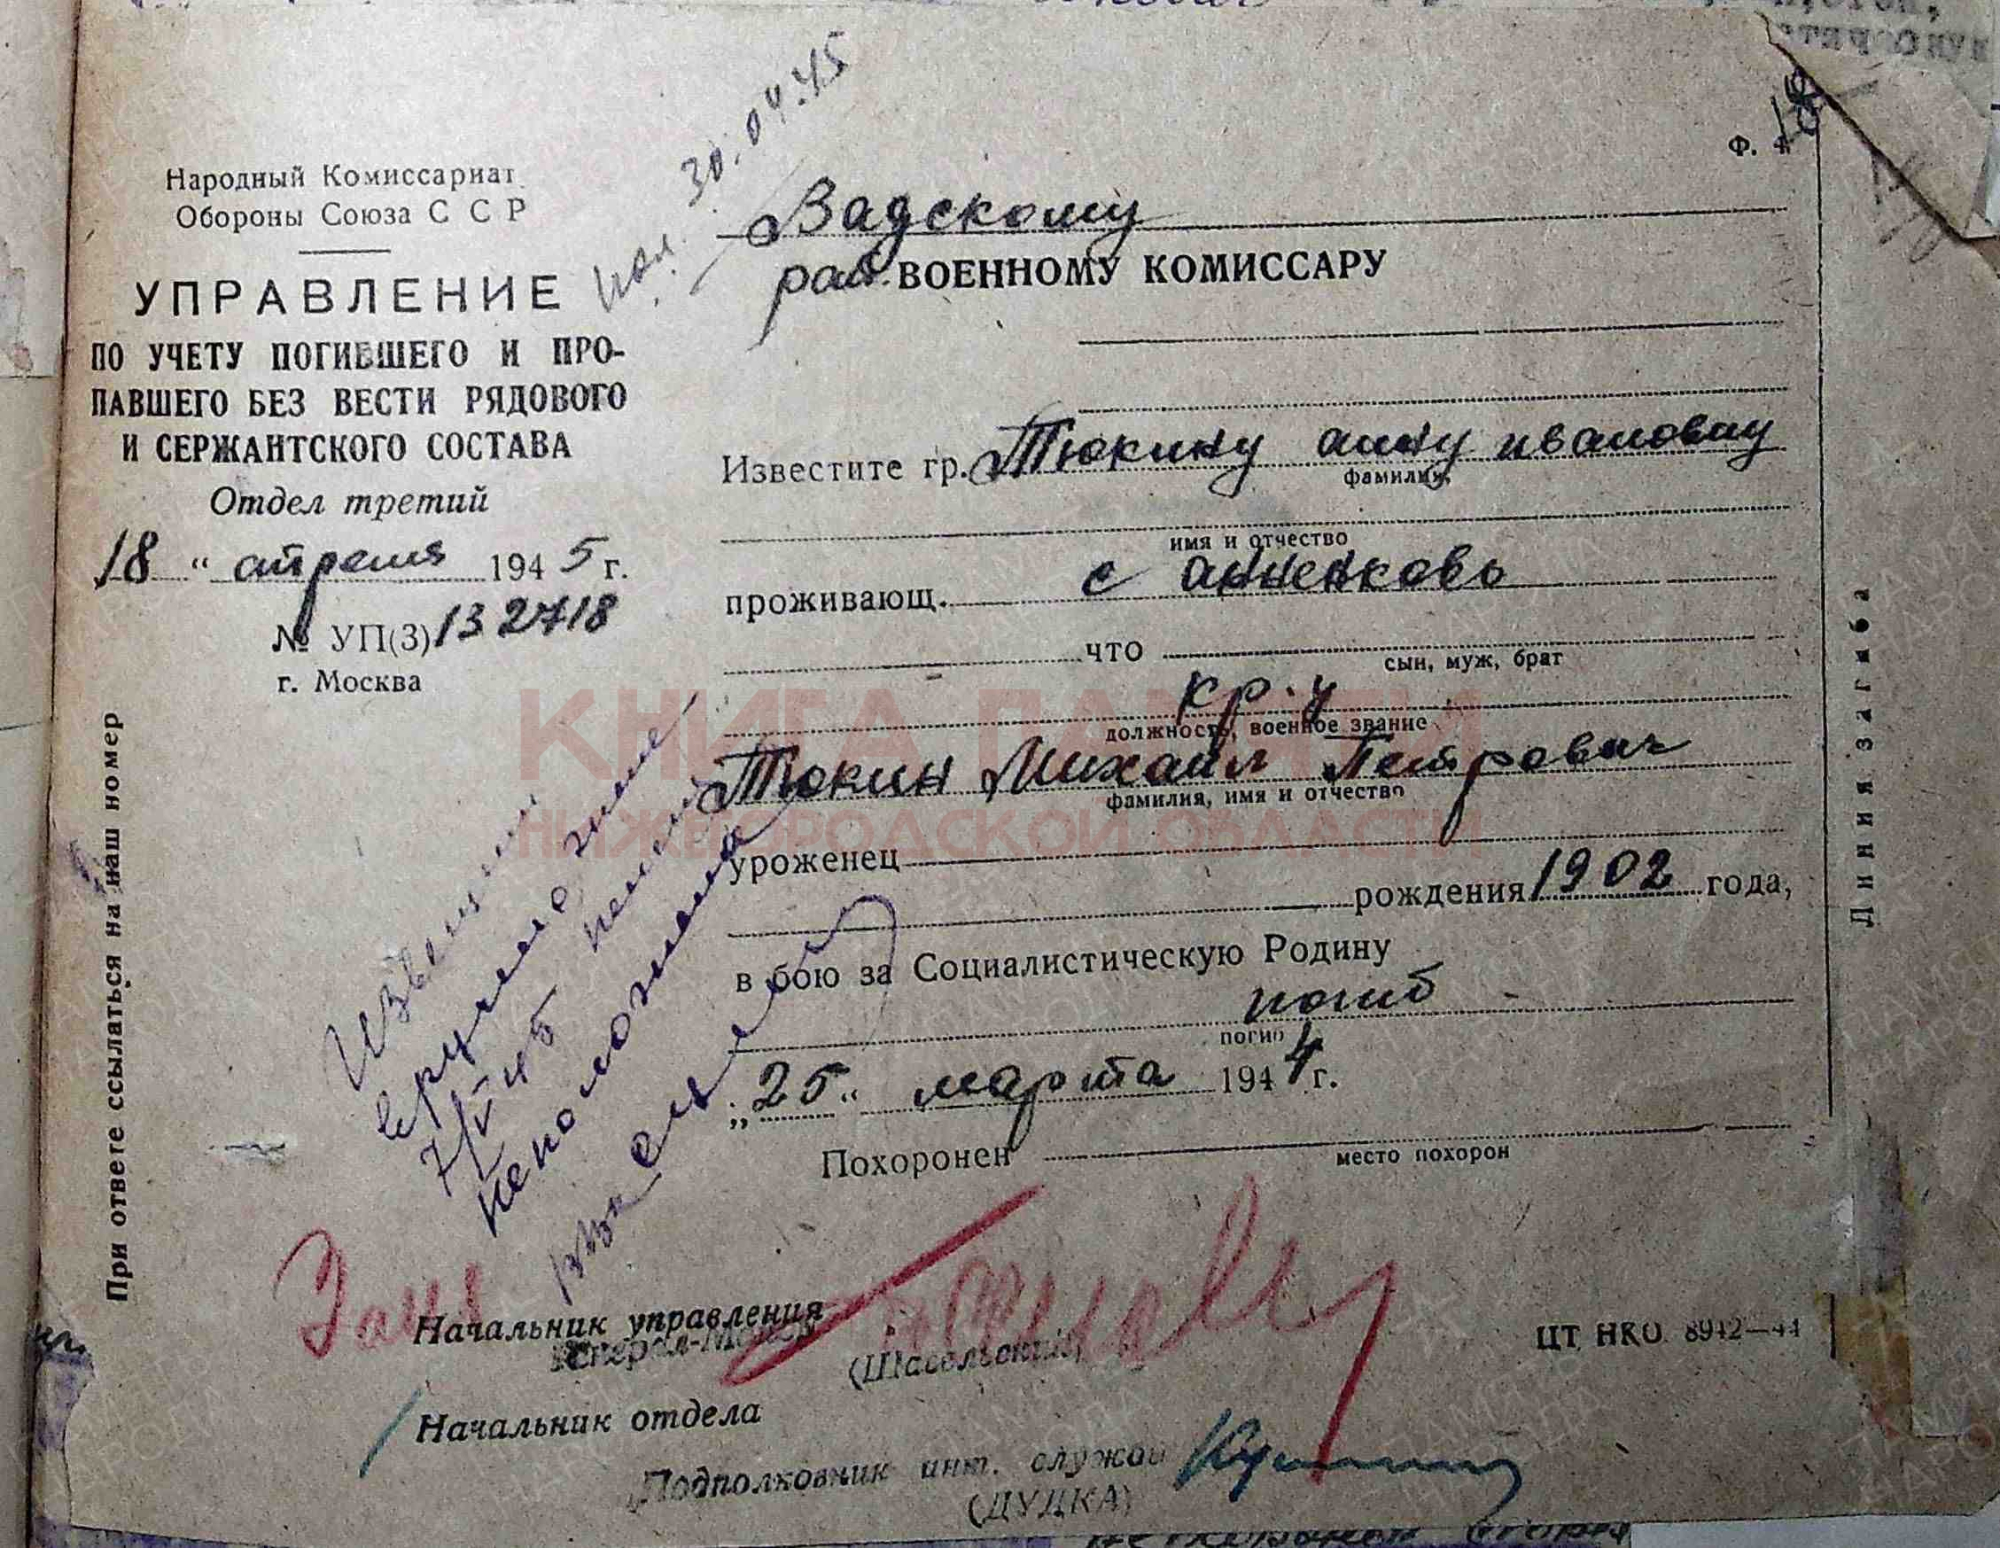 Пол. 30.04.45
Ф. 4
Народный Комиссариат
Обороны Союза С С Р
УПРАВЛЕНИЕ
ПО УЧЕТУ ПОГИБШЕГО И ПРО-
ПАВШЕГО БЕЗ ВЕСТИ РЯДОВОГО
И СЕРЖАНТСКОГО СОСТАВА
Отдел третий
18 " апреля 1945 г.
№ УП(3) 132718
г. Москва
При ответе ссылаться на наш номер
Вадскому
рай. ВОЕННОМУ КОМИССАРУ
Известите гр. Тюкину анну ивановну
фамилия,
имя и отчество
проживающ. с анненково
что
сын, муж, брат
кр-ц
должность, военное звание
Тюкин Михаил Петрович
фамилия, имя и отчество
уроженец
рождения 1902 года,
в бою за Социалистическую Родину
погиб
погиб
„25" марта 1944 г.
Похоронен
место похорон
Линия загиба
Извещение
вручено
7/V 45
Начальник управления
Генерал-Майор
(Шавельский)
ЦТ НКО 8942—44
Начальник отдела
Подполковник инт. службы
(ДУДКА)
КНИГА ПАМЯТИ
НИЖЕГОРОДСКОЙ ОБЛАСТИ